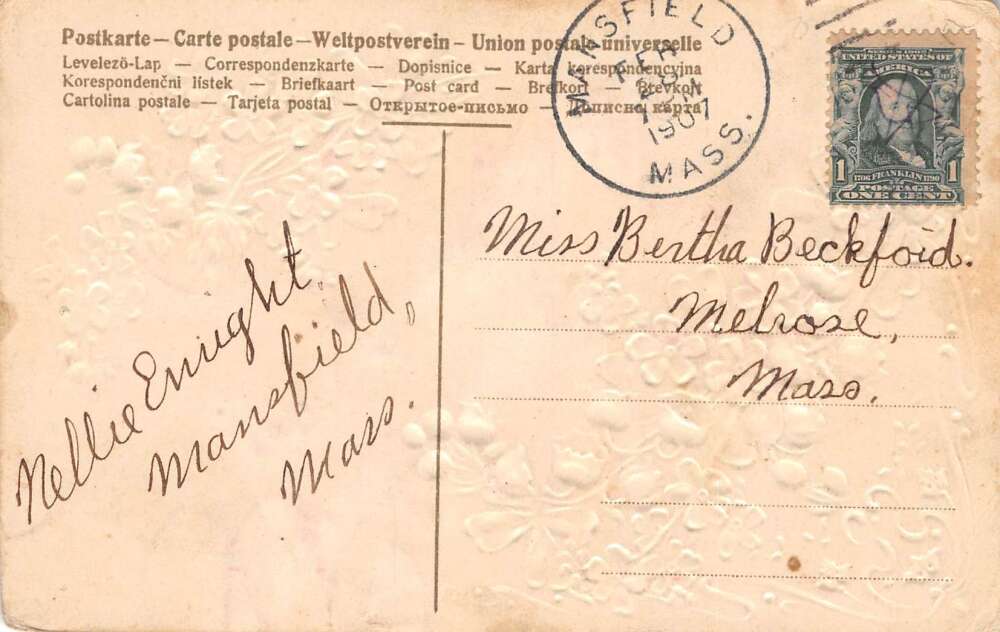 Postkarte — Carte postale — Weltpostverein — Union postale universelle
Levelezö-Lap — Correspondenzkarte — Dopisnice — Karta korespondencyjna
Korespondenční lístek — Briefkaart — Post card — Brefkort — Brevkort
Cartolina postale — Tarjeta postal — Открытое-письмо — Дописна карта
MANSFIELD
FEB
1907
MASS.
UNITED STATES OF
AMERICA
1 1706 FRANKLIN 1790 1
POSTAGE
ONE CENT
Miss Bertha Beckford.
Melrose,
Mass.
Nellie Enright,
Mansfield,
Mass.